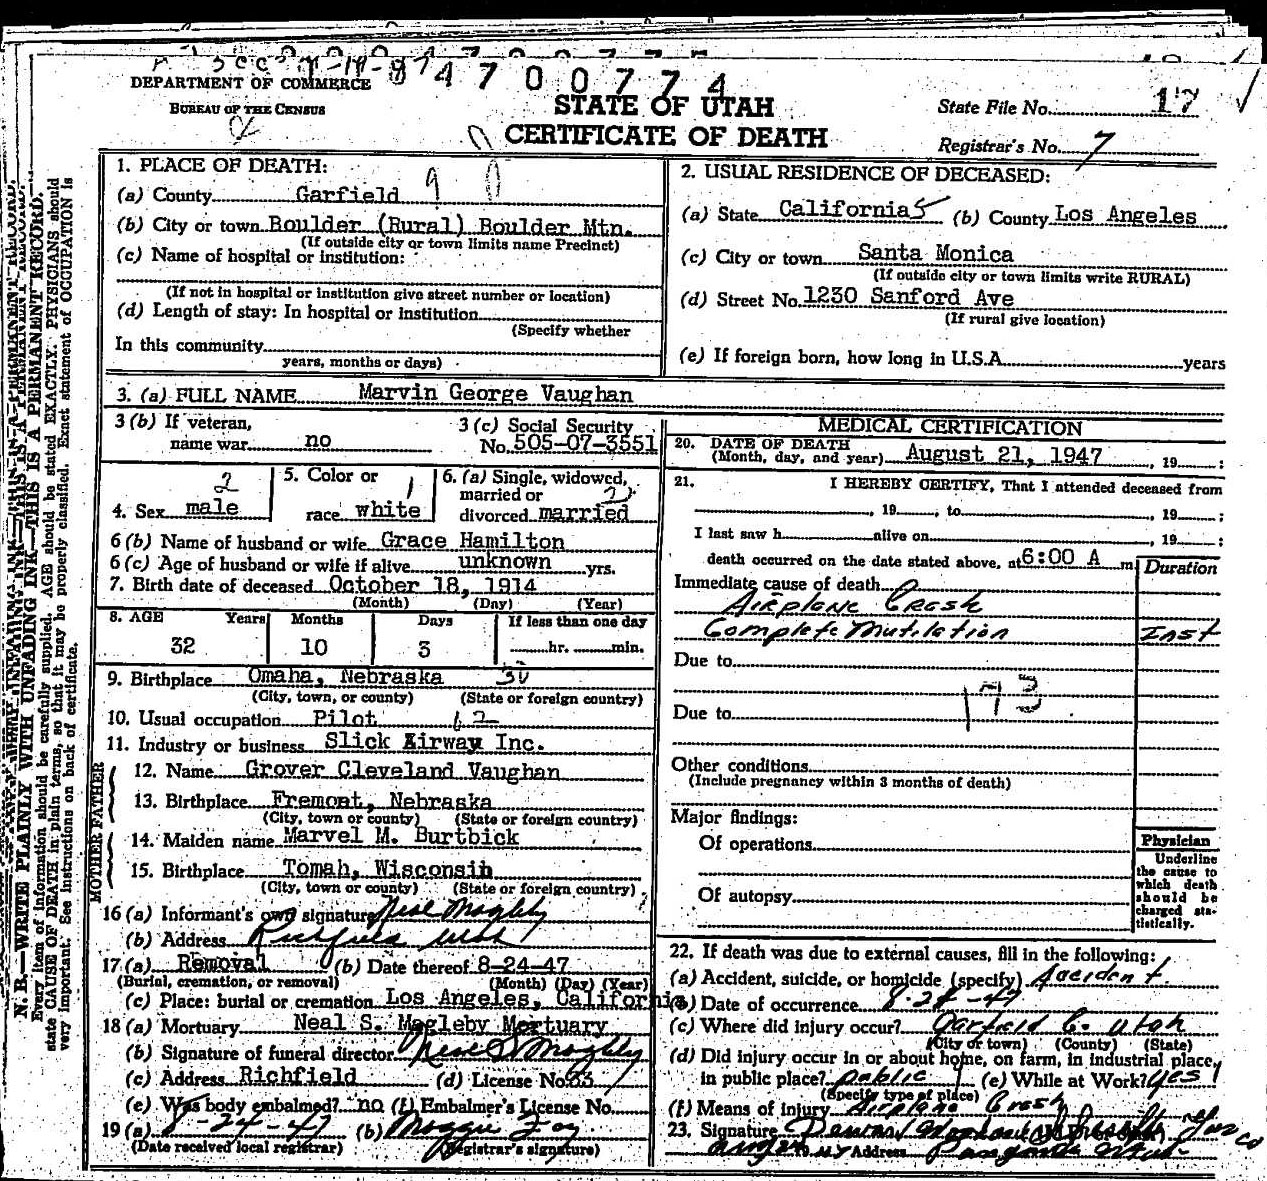 4700774
DEPARTMENT OF COMMERCE
BUREAU OF THE CENSUS
STATE OF UTAH
CERTIFICATE OF DEATH
State File No. 17
Registrar's No. 7
N. B.—WRITE PLAINLY WITH UNFADING INK—THIS IS A PERMANENT RECORD.
Every item of information should be carefully supplied. AGE should be stated EXACTLY. PHYSICIANS should
state CAUSE OF DEATH in plain terms, so that it may be properly classified. Exact statement of OCCUPATION is
very important. See instructions on back of certificate.
1. PLACE OF DEATH:
(a) County Garfield
(b) City or town Boulder (Rural) Boulder Mtn.
(If outside city or town limits name Precinct)
(c) Name of hospital or institution:
(If not in hospital or institution give street number or location)
(d) Length of stay: In hospital or institution
(Specify whether
In this community
years, months or days)
2. USUAL RESIDENCE OF DECEASED:
(a) State California (b) County Los Angeles
(c) City or town Santa Monica
(If outside city or town limits write RURAL)
(d) Street No. 1230 Sanford Ave
(If rural give location)
(e) If foreign born, how long in U.S.A. years
3. (a) FULL NAME Marvin George Vaughan
3 (b) If veteran,
name war no
3 (c) Social Security
No. 505-07-3551
4. Sex male
5. Color or
race white
6. (a) Single, widowed,
married or
divorced married
6 (b) Name of husband or wife Grace Hamilton
6 (c) Age of husband or wife if alive unknown yrs.
7. Birth date of deceased October 18, 1914
(Month) (Day) (Year)
8. AGE Years Months Days If less than one day
32 10 3 hr. min.
9. Birthplace Omaha, Nebraska
(City, town, or county) (State or foreign country)
10. Usual occupation Pilot
11. Industry or business Slick Airway Inc.
FATHER
12. Name Grover Cleveland Vaughan
13. Birthplace Fremont, Nebraska
(City, town or county) (State or foreign country)
MOTHER
14. Maiden name Marvel M. Burtbick
15. Birthplace Tomah, Wisconsin
(City, town or county) (State or foreign country)
16 (a) Informant's own signature Neal Magleby
(b) Address Richfield Utah
17 (a) Removal (b) Date thereof 8-24-47
(Burial, cremation, or removal) (Month) (Day) (Year)
(c) Place: burial or cremation Los Angeles, California
18 (a) Mortuary Neal S. Magleby Mortuary
(b) Signature of funeral director Neal S Magleby
(c) Address Richfield (d) License No. 83
(e) Was body embalmed? no (f) Embalmer's License No.
19 (a) 8-24-47 (b) Maggie
(Date received local registrar) (Registrar's signature)
MEDICAL CERTIFICATION
20. DATE OF DEATH
(Month, day, and year) August 21, 1947, 19 ;
21. I HEREBY CERTIFY, That I attended deceased from
, 19 , to , 19 ;
I last saw h alive on , 19 ;
death occurred on the date stated above, at 6:00 A m.
Duration
Immediate cause of death
Airplane Cresh
Complete Mutilation Inst
Due to
173
Due to
Other conditions
(Include pregnancy within 3 months of death)
Major findings:
Of operations
Of autopsy
Physician
Underline
the cause to
which death
should be
charged sta-
tistically.
22. If death was due to external causes, fill in the following:
(a) Accident, suicide, or homicide (specify) Accident.
(b) Date of occurrence 8-24-47
(c) Where did injury occur? Garfield Co. Utah
(City or town) (County) (State)
(d) Did injury occur in or about home, on farm, in industrial place,
in public place? public (e) While at Work? Yes
(Specify type of place)
(f) Means of injury Airplane Cresh
23. Signature
Address Panguitch Utah